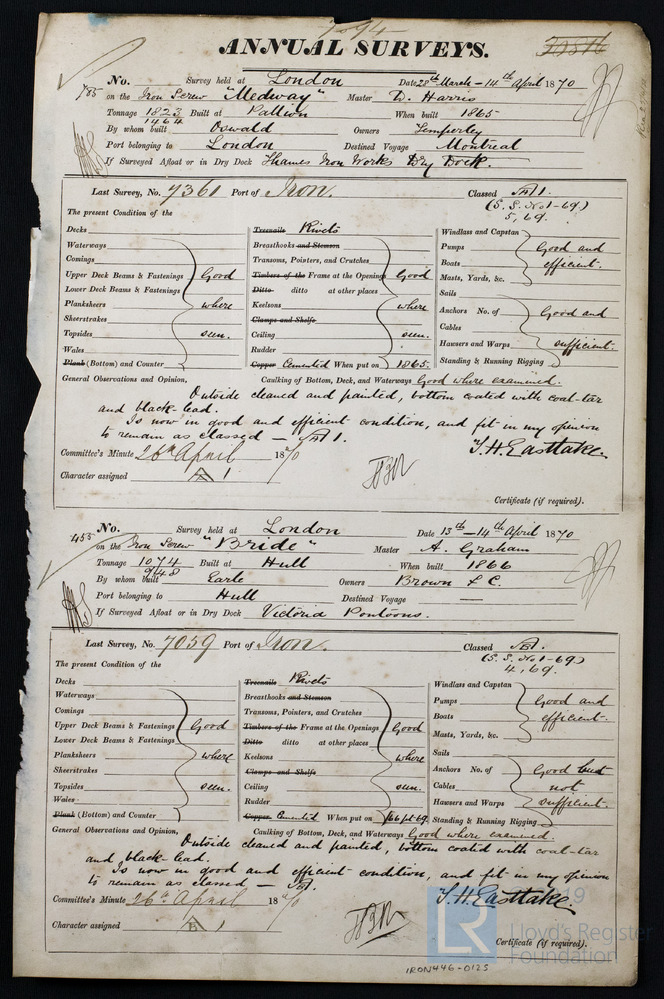 7594
ANNUAL SURVEYS.
No. Survey held at London Date 28th March - 14th April 1870
785 on the Iron Screw "Medway" Master D. Harris
Tonnage 1823 Built at Pallion When built 1865
1464
By whom built Oswald Owners Temperley
Port belonging to London Destined Voyage Montreal
If Surveyed Afloat or in Dry Dock Thames Iron Works Dry Dock.
Last Survey, No. 7361 Port of Iron. Classed A 1.
(S. S. No 1-69)
5, 69.
The present Condition of the
Decks
Waterways
Comings
Upper Deck Beams & Fastenings Good
Lower Deck Beams & Fastenings
Planksheers where
Sheerstrakes
Topsides seen.
Wales
Plank (Bottom) and Counter
Treenails Rivets
Breasthooks and Stemson
Transoms, Pointers, and Crutches
Timbers of the Frame at the Openings Good
Ditto ditto at other places
Keelsons where
Clamps and Shelfs
Ceiling seen.
Rudder
Copper Cemented When put on 1865.
Windlass and Capstan
Pumps Good and
Boats efficient.
Masts, Yards, &c.
Sails
Anchors No. of Good and
Cables
Hausers and Warps sufficient.
Standing & Running Rigging
General Observations and Opinion, Caulking of Bottom, Deck, and Waterways Good where examined.
Outside cleaned and painted, bottom coated with coal-tar
and black-lead.
Is now in good and efficient condition, and fit in my opinion
to remain as classed — A 1.
T. H. Easttake
Committee's Minute 26th April 1870
Character assigned A 1
Certificate (if required).
No. Survey held at London Date 13th - 14th April 1870
455 on the Iron Screw "Bride" Master A. Graham
Tonnage 1074 Built at Hull When built 1866
By whom built Earle Owners Brown & C.
Port belonging to Hull Destined Voyage —
If Surveyed Afloat or in Dry Dock Victoria Pontoons.
Last Survey, No. 7059 Port of Iron. Classed
(S. S. No 1-69)
4, 69.
The present Condition of the
Decks
Waterways
Comings
Upper Deck Beams & Fastenings Good
Lower Deck Beams & Fastenings
Planksheers where
Sheerstrakes
Topsides seen.
Wales
Plank (Bottom) and Counter
Treenails Rivets
Breasthooks and Stemson
Transoms, Pointers, and Crutches
Timbers of the Frame at the Openings Good
Ditto ditto at other places
Keelsons where
Clamps and Shelfs
Ceiling seen.
Rudder
Copper Cemented When put on
Windlass and Capstan
Pumps Good and
Boats efficient.
Masts, Yards, &c.
Sails
Anchors No. of Good but
Cables not
Hausers and Warps sufficient.
Standing & Running Rigging
General Observations and Opinion, Caulking of Bottom, Deck, and Waterways Good where examined.
Outside cleaned and painted, bottom coated with coal-tar
and black-lead.
Is now in good and efficient condition, and fit in my opinion
to remain as classed —
T. H. Easttake
Committee's Minute 26th April 1870
Character assigned 1
Certificate (if required).
LR
Lloyd's Register
Foundation
IRON446-0125